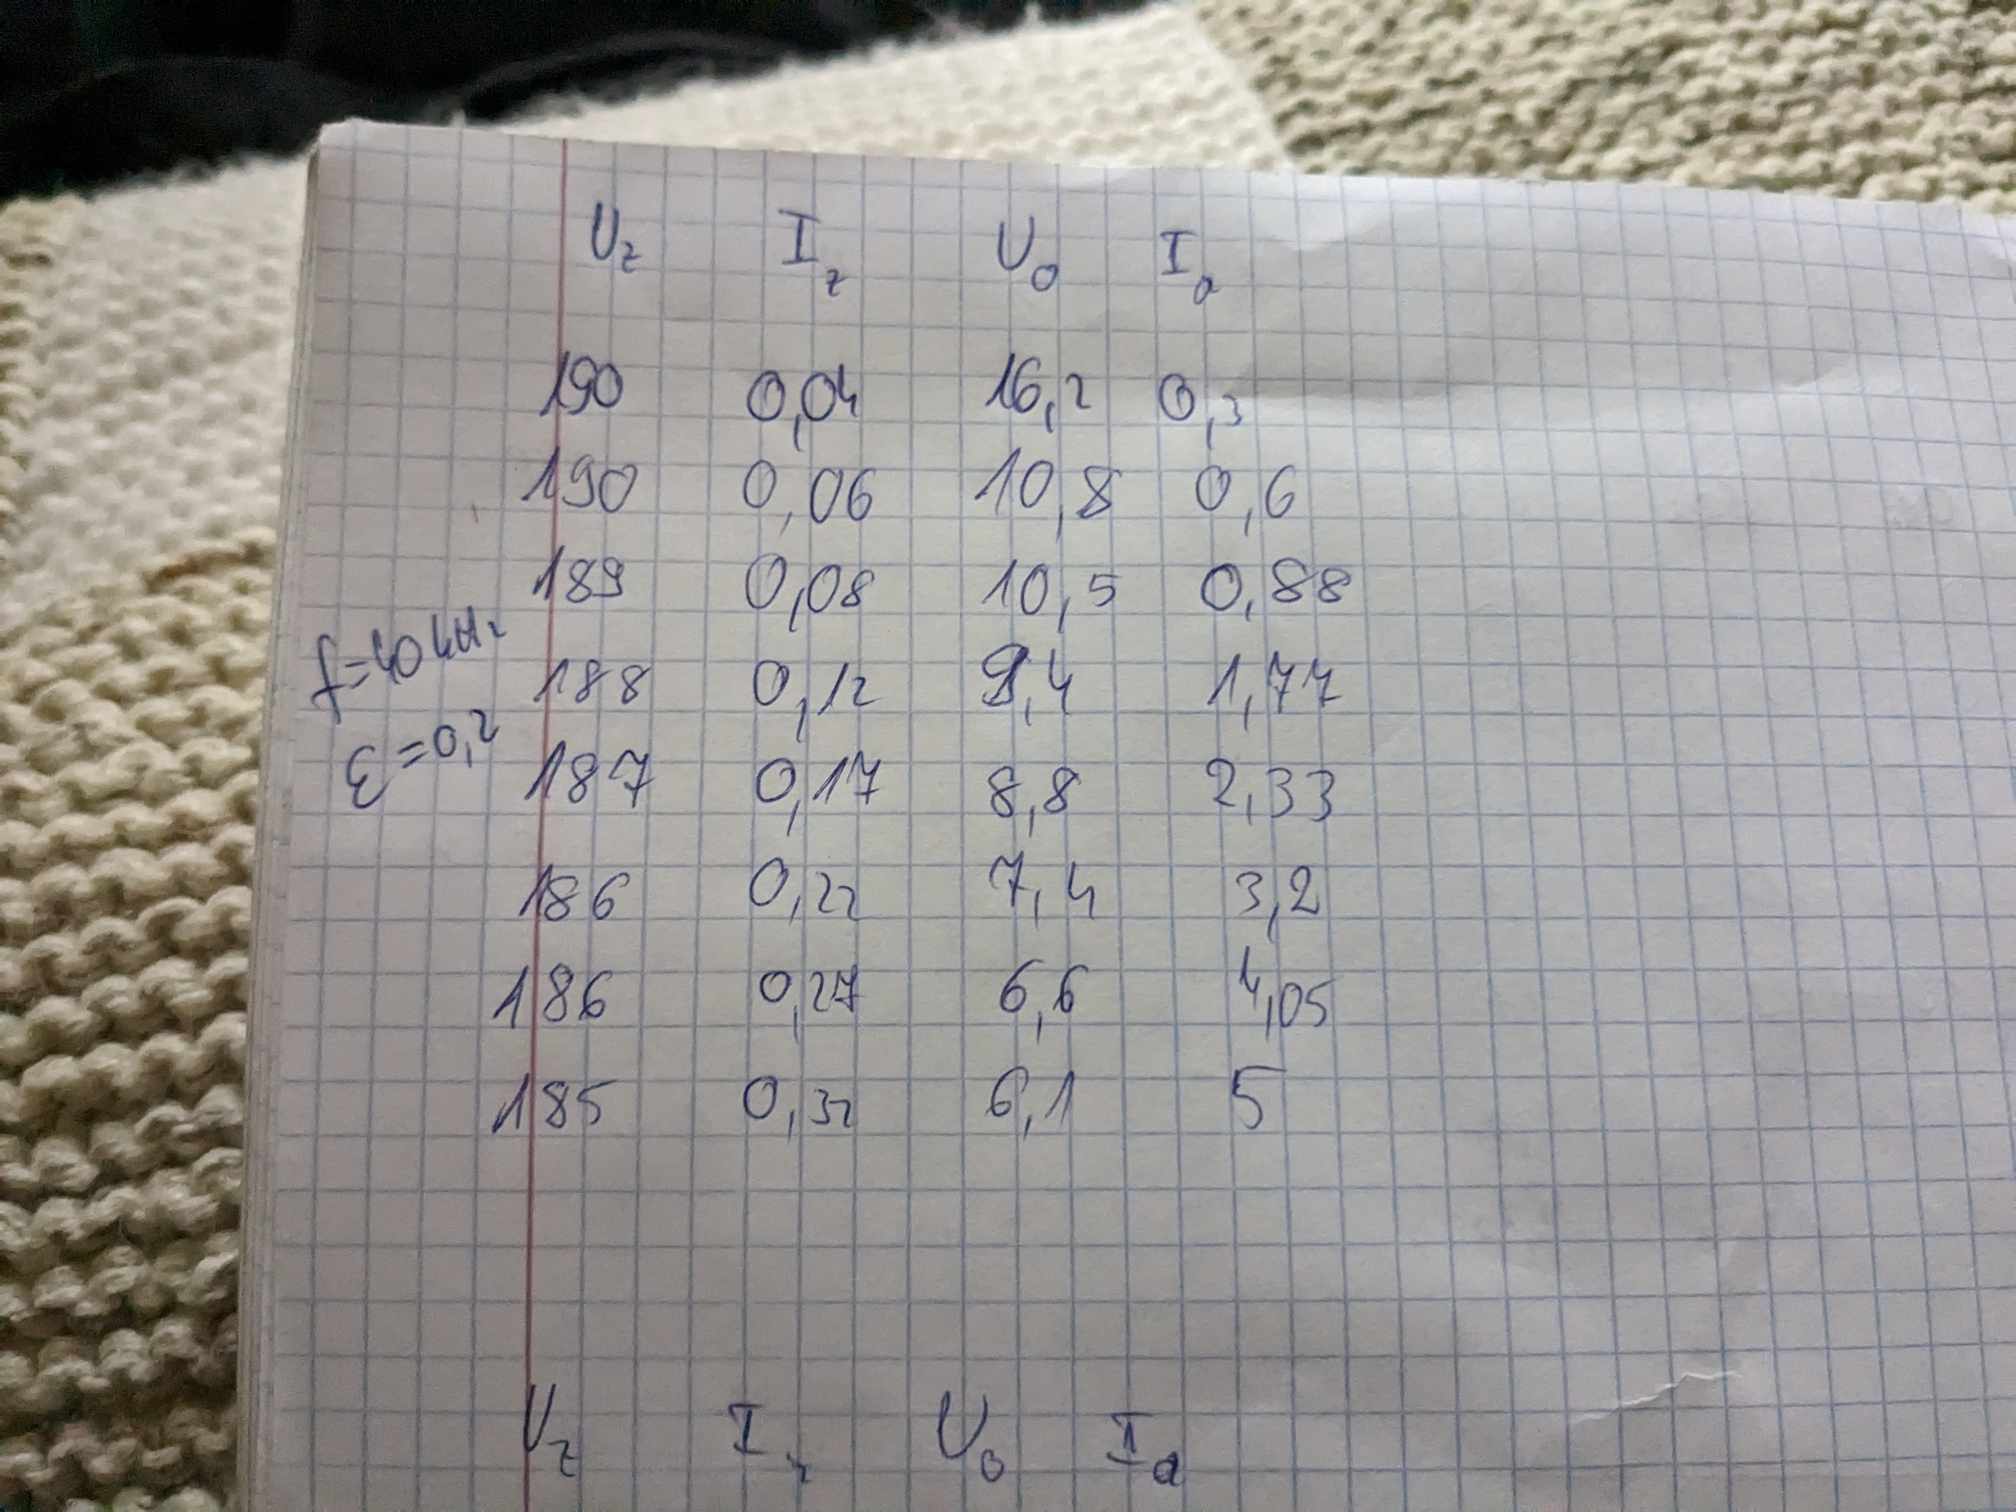 U_z I_z U_o I_o
190 0,04 16,2 0,3
190 0,06 10,8 0,6
189 0,08 10,5 0,88
f=40 kHz
188 0,12 9,4 1,77
ε=0,2
187 0,17 8,8 2,33
186 0,22 7,4 3,2
186 0,27 6,6 4,05
185 0,32 6,1 5
U_z I_z U_o I_o